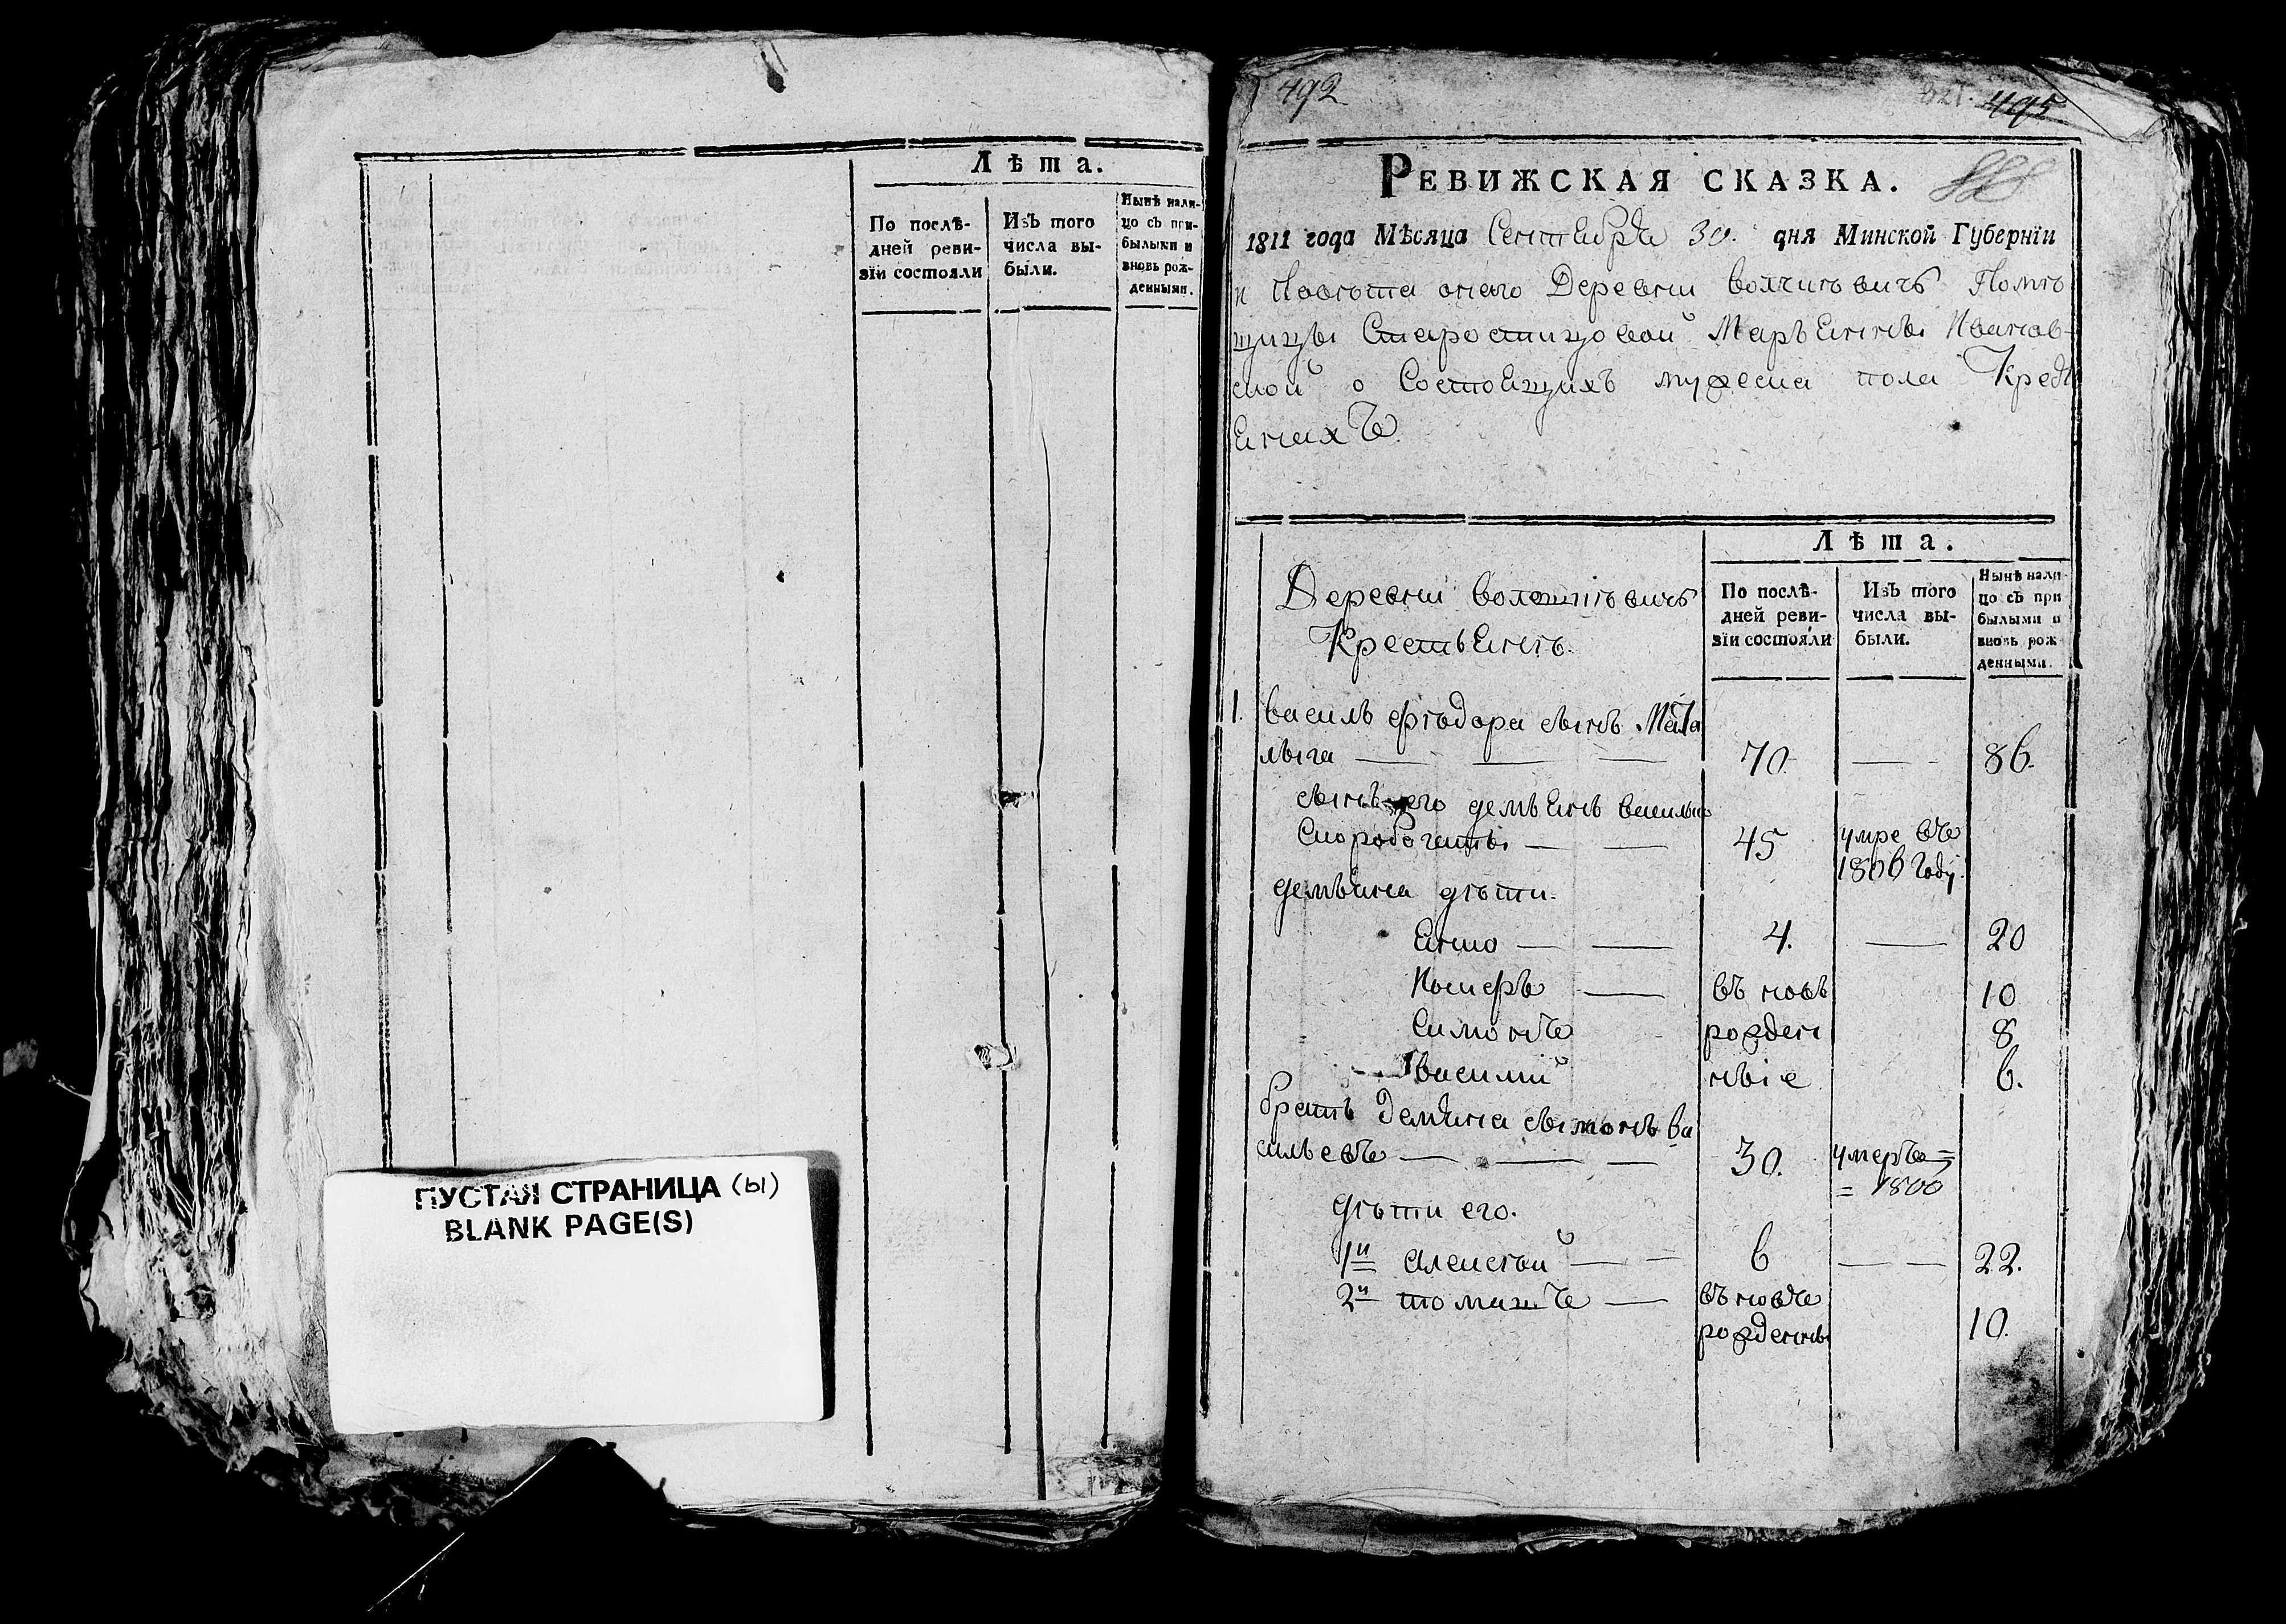 Лѣта.
По послѣ-
дней реви-
зіи состояли
Изъ того
числа вы-
были.
Нынѣ нали-
цо съ при-
былыми и
вновь рож-
денными.
ПУСТАЯ СТРАНИЦА (ы)
BLANK PAGE(S)
492
495
РЕВИЖСКАЯ СКАЗКА.
1811 года Мѣсяца Сентября 30. дня Минской Губерніи
и Повѣта онаго Деревни Волчковичъ Помѣ
щицы Маріянны Иванов-
ской о Состоящихъ мужеска пола Кресть
янахъ
Лѣта.
Деревни
Крестьянѣ
По послѣ-
дней реви-
зіи состояли
Изъ того
числа вы-
были.
Нынѣ нали
цо съ при
былыми и
вновь рож
денными.
1. василь фѣодора сынъ
70. 86.
сынъ его демьянъ васильевъ
45 умре въ
1806 году.
демьяна дѣти.
4. 20
въ новь 10
Симонъ рожден 8
василий ные 6.
братъ демьяна симонъ ва
сильевъ 30. умеръ =
= 1800
дѣти его.
1й алексѣй 6 22.
2й томашъ въ новъ
рожденны 10.